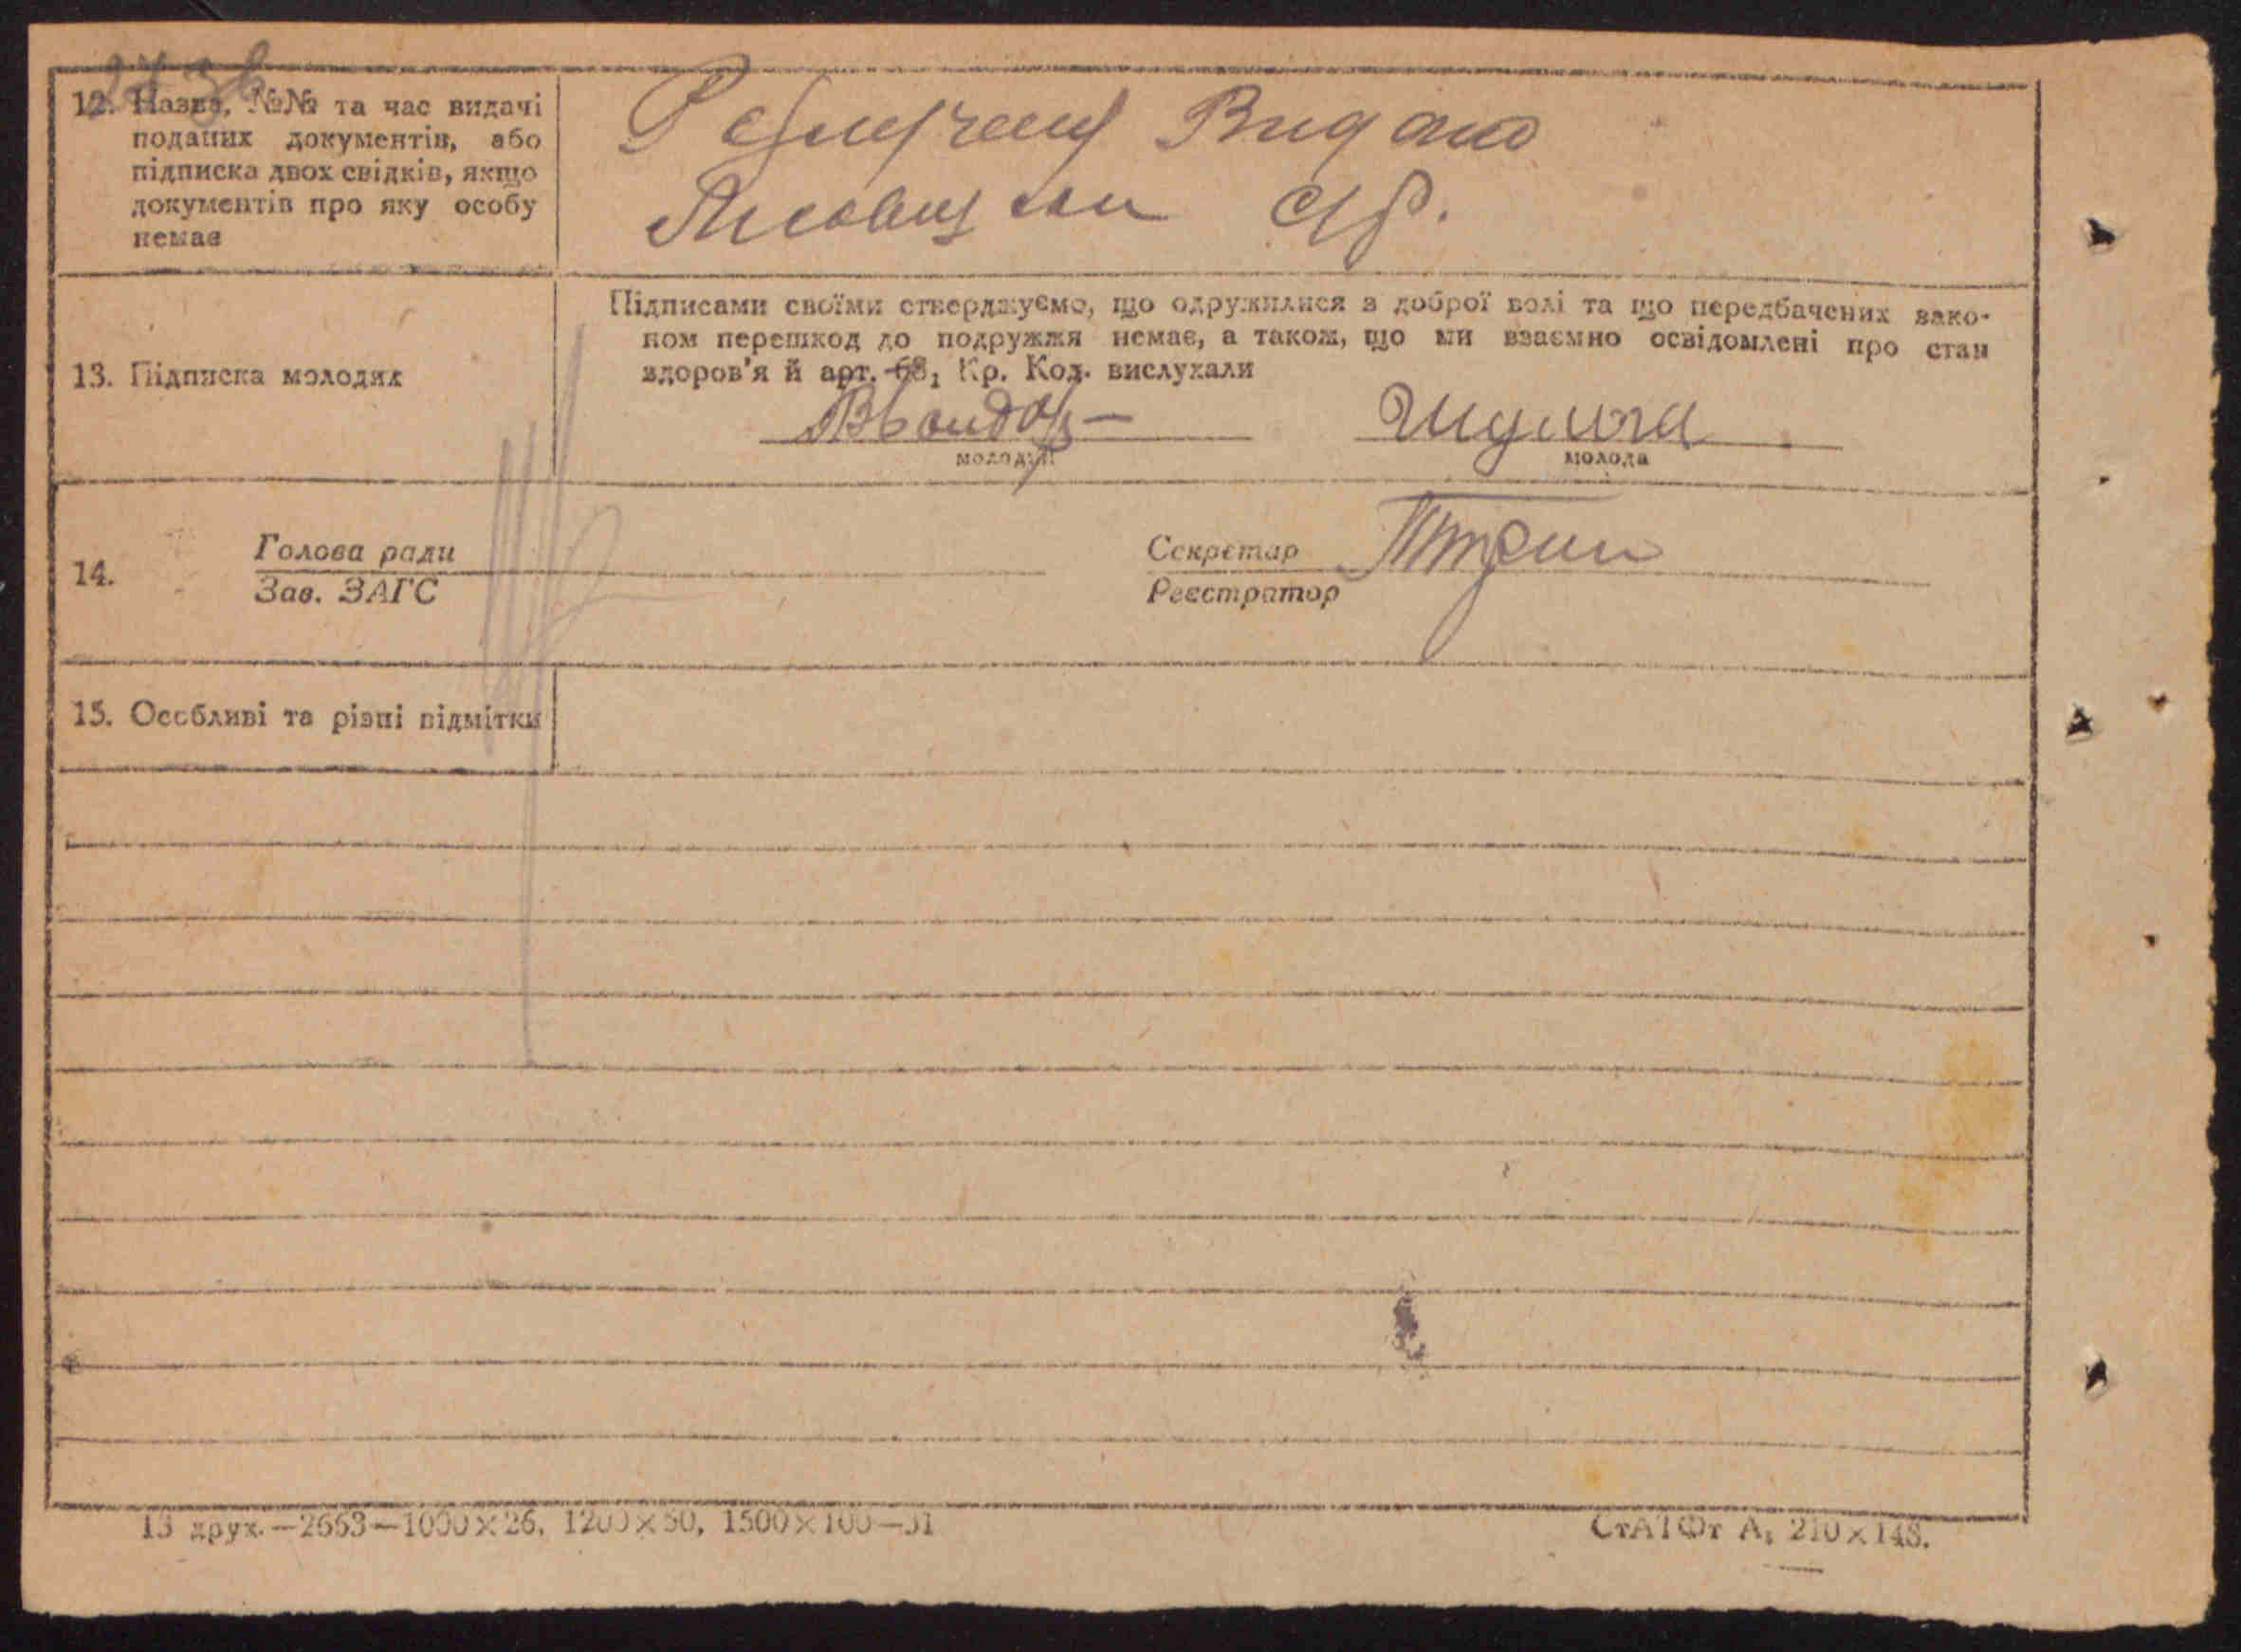 12. Назва, №№ та час видачі
поданих документів, або
підписка двох свідків, якщо
документів про яку особу
немає
Видано
с/р.
13. Підписка молодих
Підписами своїми стверджуємо, що одружилися з доброї волі та що передбачених зако-
ном перешкод до подружжя немає, а також, що ми взаємно освідомлені про стан
здоров'я й арт. 68₁ Кр. Код. вислухали
Шулига
молодий
молода
14.
Голова ради
Зав. ЗАГС
Секретар
Реєстратор
15. Особливі та різні відмітки
13 друк.—2663—1000×26, 1200×50, 1500×100—31
СтАТФт А₅ 210×148.